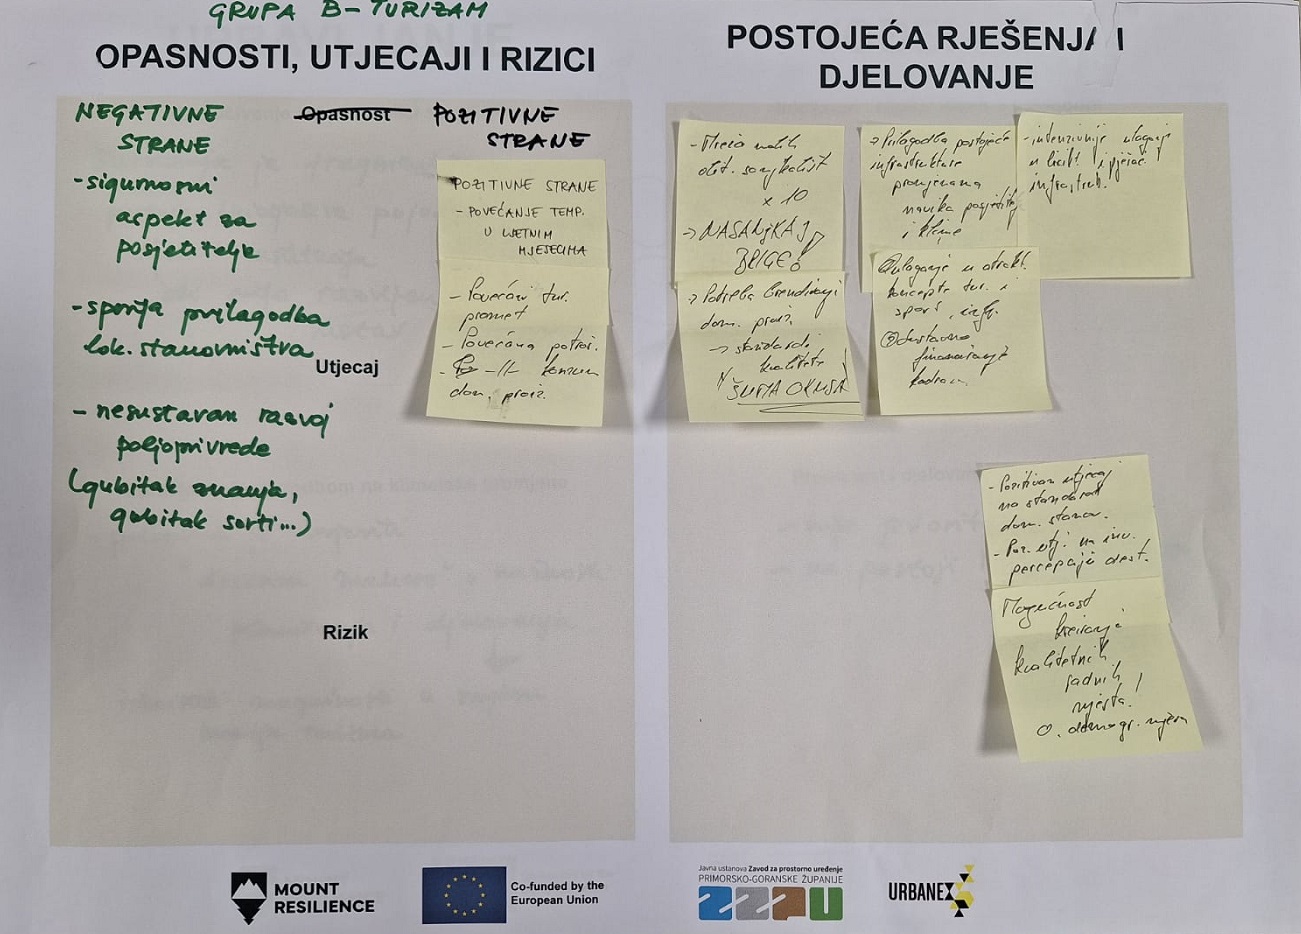 GRUPA B - TURIZAM
OPASNOSTI, UTJECAJI I RIZICI
NEGATIVNE
STRANE
Opasnost
POZITIVNE
STRANE
- sigurnosni
aspekt za
posjetitelje
- sporija prilagodba
lok. stanovništva
Utjecaj
- nesustavan razvoj
poljoprivrede
(gubitak znanja,
gubitak sorti...)
Rizik
POZITIVNE STRANE
- POVEĆANJE TEMP.
U LJETNIM
MJESECIMA
- Povećani tur.
promet
- Povećana potroš.
- -||- konzum
dom. proiz.
POSTOJEĆA RJEŠENJA I
DJELOVANJE
- Mreža malih
obit.
x 10
→
BRIGE
→ Potreba brendiranja
dom. proiz.
→ standardi
kvalitete
→ Prilagodba postojeće
infrastrukture
promjenama
navika posjetitelja
i klime
- intenzivnije ulaganje
u bicikl. i pješač.
infrastrukt.
Ulaganje u atrakt.
koncepte tur. i
sport. infr.
financiranje
kadrova
- Pozitivan utjecaj
na standard
dom. stanov.
- Poz. utj. na inv.
percepciju dest.
Mogućnost
kreiranja
kvalitetnih
radnih
mjesta!
demogr. mjera
MOUNT
RESILIENCE
Co-funded by the
European Union
Javna ustanova Zavod za prostorno uređenje
PRIMORSKO-GORANSKE ŽUPANIJE
ZZPU
URBANEX